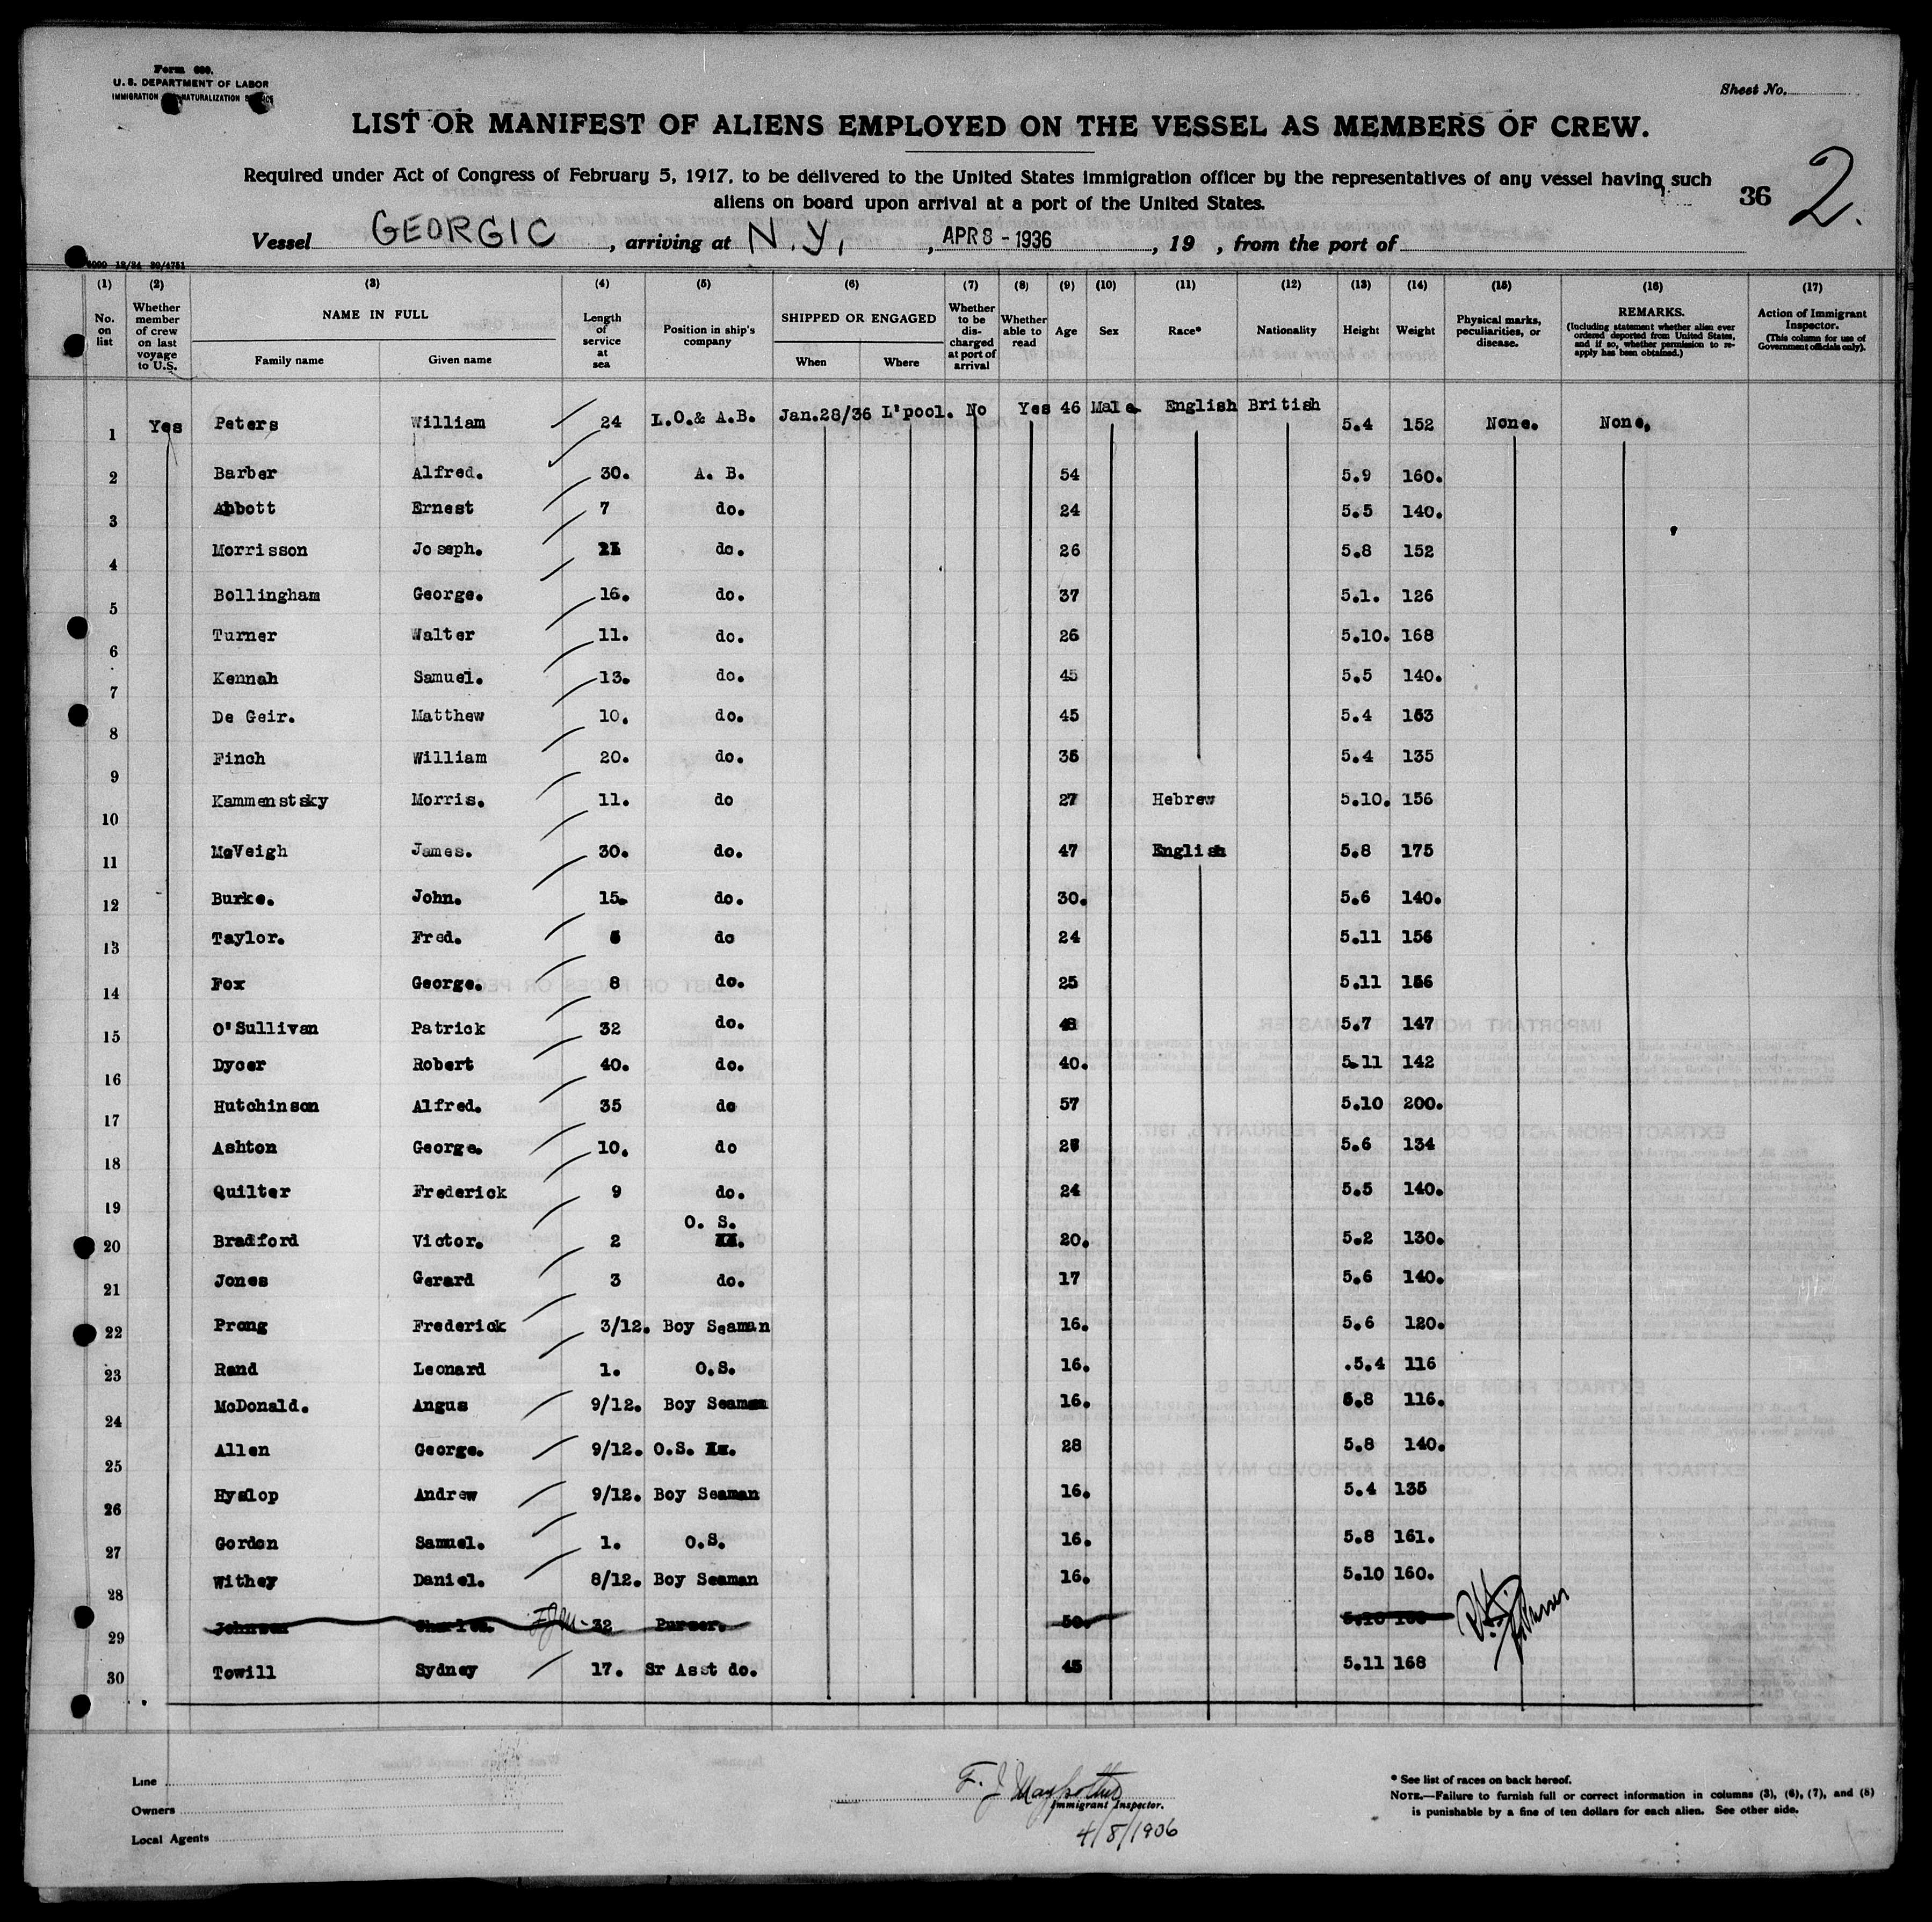 Form 680.
U. S. DEPARTMENT OF LABOR
IMMIGRATION NATURALIZATION
Sheet No.
LIST OR MANIFEST OF ALIENS EMPLOYED ON THE VESSEL AS MEMBERS OF CREW.
Required under Act of Congress of February 5, 1917, to be delivered to the United States immigration officer by the representatives of any vessel having such
aliens on board upon arrival at a port of the United States.
36 2.
Vessel GEORGIC, arriving at N. Y., , APR 8 - 1936, 19 , from the port of
(1) (2) (3) (4) (5) (6) (7) (8) (9) (10) (11) (12) (13) (14) (15) (16) (17)
No. on list
Whether member of crew on last voyage to U.S.
NAME IN FULL
Family name Given name
Length of service at sea
Position in ship's company
SHIPPED OR ENGAGED
When Where
Whether to be discharged at port of arrival
Whether able to read
Age
Sex
Race*
Nationality
Height
Weight
Physical marks, peculiarities, or disease.
REMARKS. (Including statement whether alien ever ordered deported from United States, and if so, whether permission to re-apply has been obtained.)
Action of Immigrant Inspector. (This column for use of Government officials only).
1 Yes Peters William 24 L.O.& A.B. Jan.28/36 L'pool. No Yes 46 Male English British 5.4 152 None. None.
2 Barber Alfred. 30. A. B. 54 5.9 160.
3 Abbott Ernest 7 do. 24 5.5 140.
4 Morrisson Joseph. do. 26 5.8 152
5 Bollingham George. 16. do. 37 5.1. 126
6 Turner Walter 11. do. 26 5.10. 168
7 Kennah Samuel. 13. do. 45 5.5 140.
8 De Geir. Matthew 10. do. 45 5.4 153
9 Finch William 20. do. 36 5.4 135
10 Kammenstsky Morris. 11. do 27 Hebrew 5.10. 156
11 McVeigh James. 30. do. 47 English 5.8 175
12 Burke. John. 15. do. 30. 5.6 140.
13 Taylor. Fred. do 24 5.11 156
14 Fox George. 8 do. 25 5.11 156
15 O'Sullivan Patrick 32 do. 5.7 147
16 Dycer Robert 40. do. 40. 5.11 142
17 Hutchinson Alfred. 35 do 57 5.10 200.
18 Ashton George. 10. do 5.6 134
19 Quilter Frederick 9 do. 24 5.5 140.
O. S.
20 Bradford Victor. 2 20. 5.2 130.
21 Jones Gerard 3 do. 17 5.6 140.
22 Prong Frederick 3/12. Boy Seaman 16. 5.6 120.
23 Rand Leonard 1. O.S. 16. .5.4 116
24 McDonald. Angus 9/12. Boy Seaman 16. 5.8 116.
25 Allen George. 9/12. O.S. 28 5.8 140.
26 Hyslop Andrew 9/12. Boy Seaman 16. 5.4 135
27 Gordon Samuel. 1. O.S. 16. 5.8 161.
28 Withey Daniel. 8/12. Boy Seaman 16. 5.10 160.
29 Johnson Charles. 32 Purser. 50. 5.10
30 Towill Sydney 17. Sr Asst do. 45 5.11 168
Line
Owners
Local Agents
F. J.
Immigrant Inspector.
4/8/1936
* See list of races on back hereof.
NOTE.—Failure to furnish full or correct information in columns (3), (6), (7), and (5)
is punishable by a fine of ten dollars for each alien. See other side.